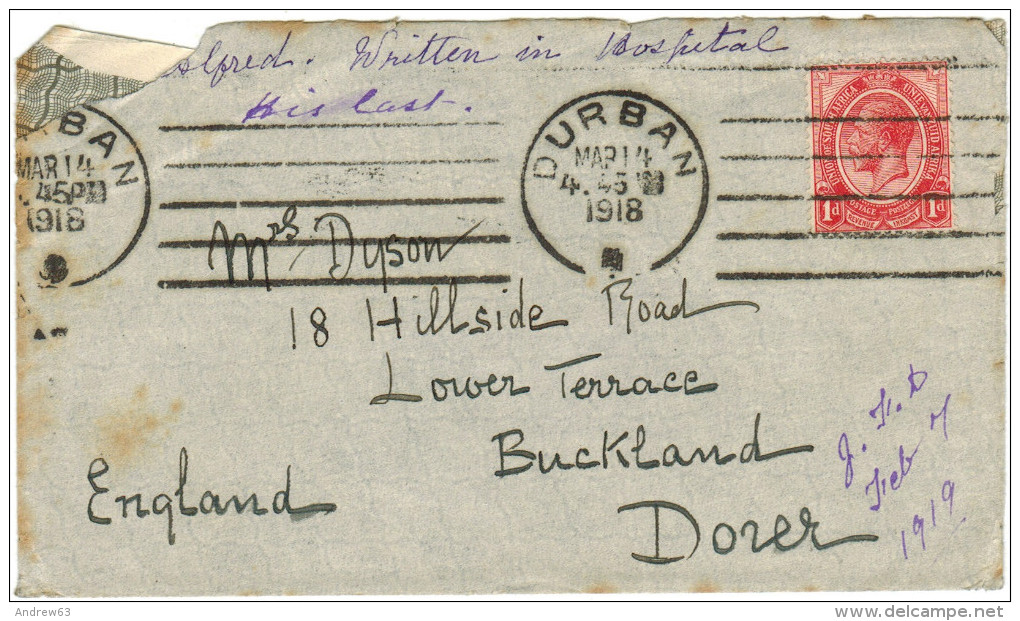 Alfred. Written in Hospital
His last.
BAN
MAR 14
.45PM
1918
DURBAN
MAR 14
4.45PM
1918
UNION OF SOUTH AFRICA
UNIE VAN ZUID AFRIKA
1d
POSTAGE
POSTZEGEL
1d
REVENUE
INKOMST
Mrs Dyson
18 Hillside Road
Lower Terrace
Buckland
Dover
England
J. F. D
Feb 7
1919
Andrew63
delcampe.net